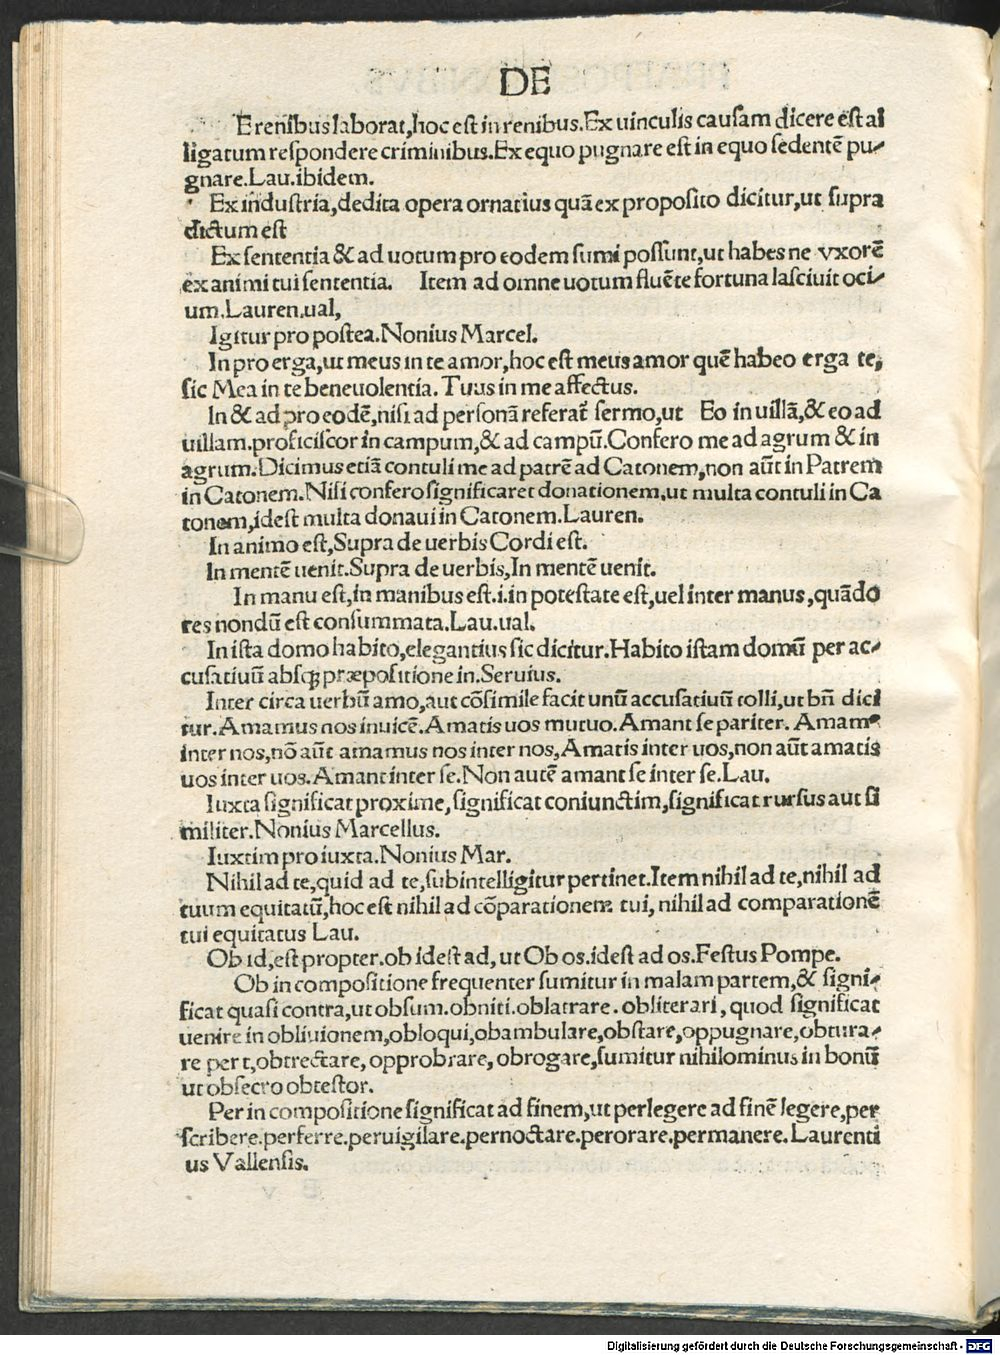 DE
E renibus laborat,hoc est in renibus.Ex uinculis causam dicere est al
ligatum respondere criminibus.Ex equo pugnare est in equo sedentē pu-
gnare.Lau.ibidem.
Ex industria,dedita opera ornatius quā ex proposito dicitur,ut supra
dictum est
Ex sententia & ad uotum pro eodem sumi possunt,ut habes ne vxorē
ex animi tui sententia. Item ad omne uotum fluēte fortuna lasciuit oci-
um.Lauren.ual,
Igitur pro postea.Nonius Marcel.
In pro erga,ut meus in te amor,hoc est meus amor quē habeo erga te,
sic Mea in te beneuolentia. Tuus in me affectus.
In & ad pro eodē,nisi ad personā referat̄ sermo,ut Eo in uillā,& eo ad
uillam.proficiscor in campum,& ad campū.Confero me ad agrum & in
agrum.Dicimus etiā contuli me ad patrē ad Catonem,non aūt in Patrem
in Catonem.Nisi confero significaret donationem,ut multa contuli in Ca
tonem,idest multa donaui in Catonem.Lauren.
In animo est,Supra de uerbis Cordi est.
In mentē uenit.Supra de uerbis,In mentē uenit.
In manu est,in manibus est.i.in potestate est,uel inter manus,quādo
res nondū est consummata.Lau.ual.
In ista domo habito,elegantius sic dicitur.Habito istam domū per ac-
cusatiuū absqꝫ præpositione in.Seruius.
Inter circa uerbū amo,aut cōsimile facit unū accusatiuū tolli,ut bn̄ dici
tur.Amamus nos inuicē.Amatis uos mutuo.Amant se pariter. Amamꝰ
inter nos,nō aūt amamus nos inter nos,Amatis inter uos,non aūt amatis
uos inter uos.Amant inter se.Non autē amant se inter se.Lau.
Iuxta significat proxime,significat coniunctim,significat rursus aut si
militer.Nonius Marcellus.
Iuxtim pro iuxta.Nonius Mar.
Nihil ad te,quid ad te,subintelligitur pertinet.Item nihil ad te,nihil ad
tuum equitatū,hoc est nihil ad cōparationem tui,nihil ad comparationē
tui equitatus Lau.
Ob id,est propter.ob idest ad, ut Ob os.idest ad os.Festus Pompe.
Ob in compositione frequenter sumitur in malam partem,& signi-
ficat quasi contra,ut obsum.obniti.oblatrare.obliterari,quod significat
uenire in obliuionem,obloqui,obambulare,obstare,oppugnare,obtura-
re per t,obtrectare, opprobrare, obrogare,sumitur nihilominus in bonū
ut obsecro obtestor.
Per in compositione significat ad finem,ut perlegere ad finē legere,per
scribere.perferre.peruigilare.pernoctare.perorare.permanere.Laurenti
us Vallensis.
Digitalisierung gefördert durch die Deutsche Forschungsgemeinschaft - DFG